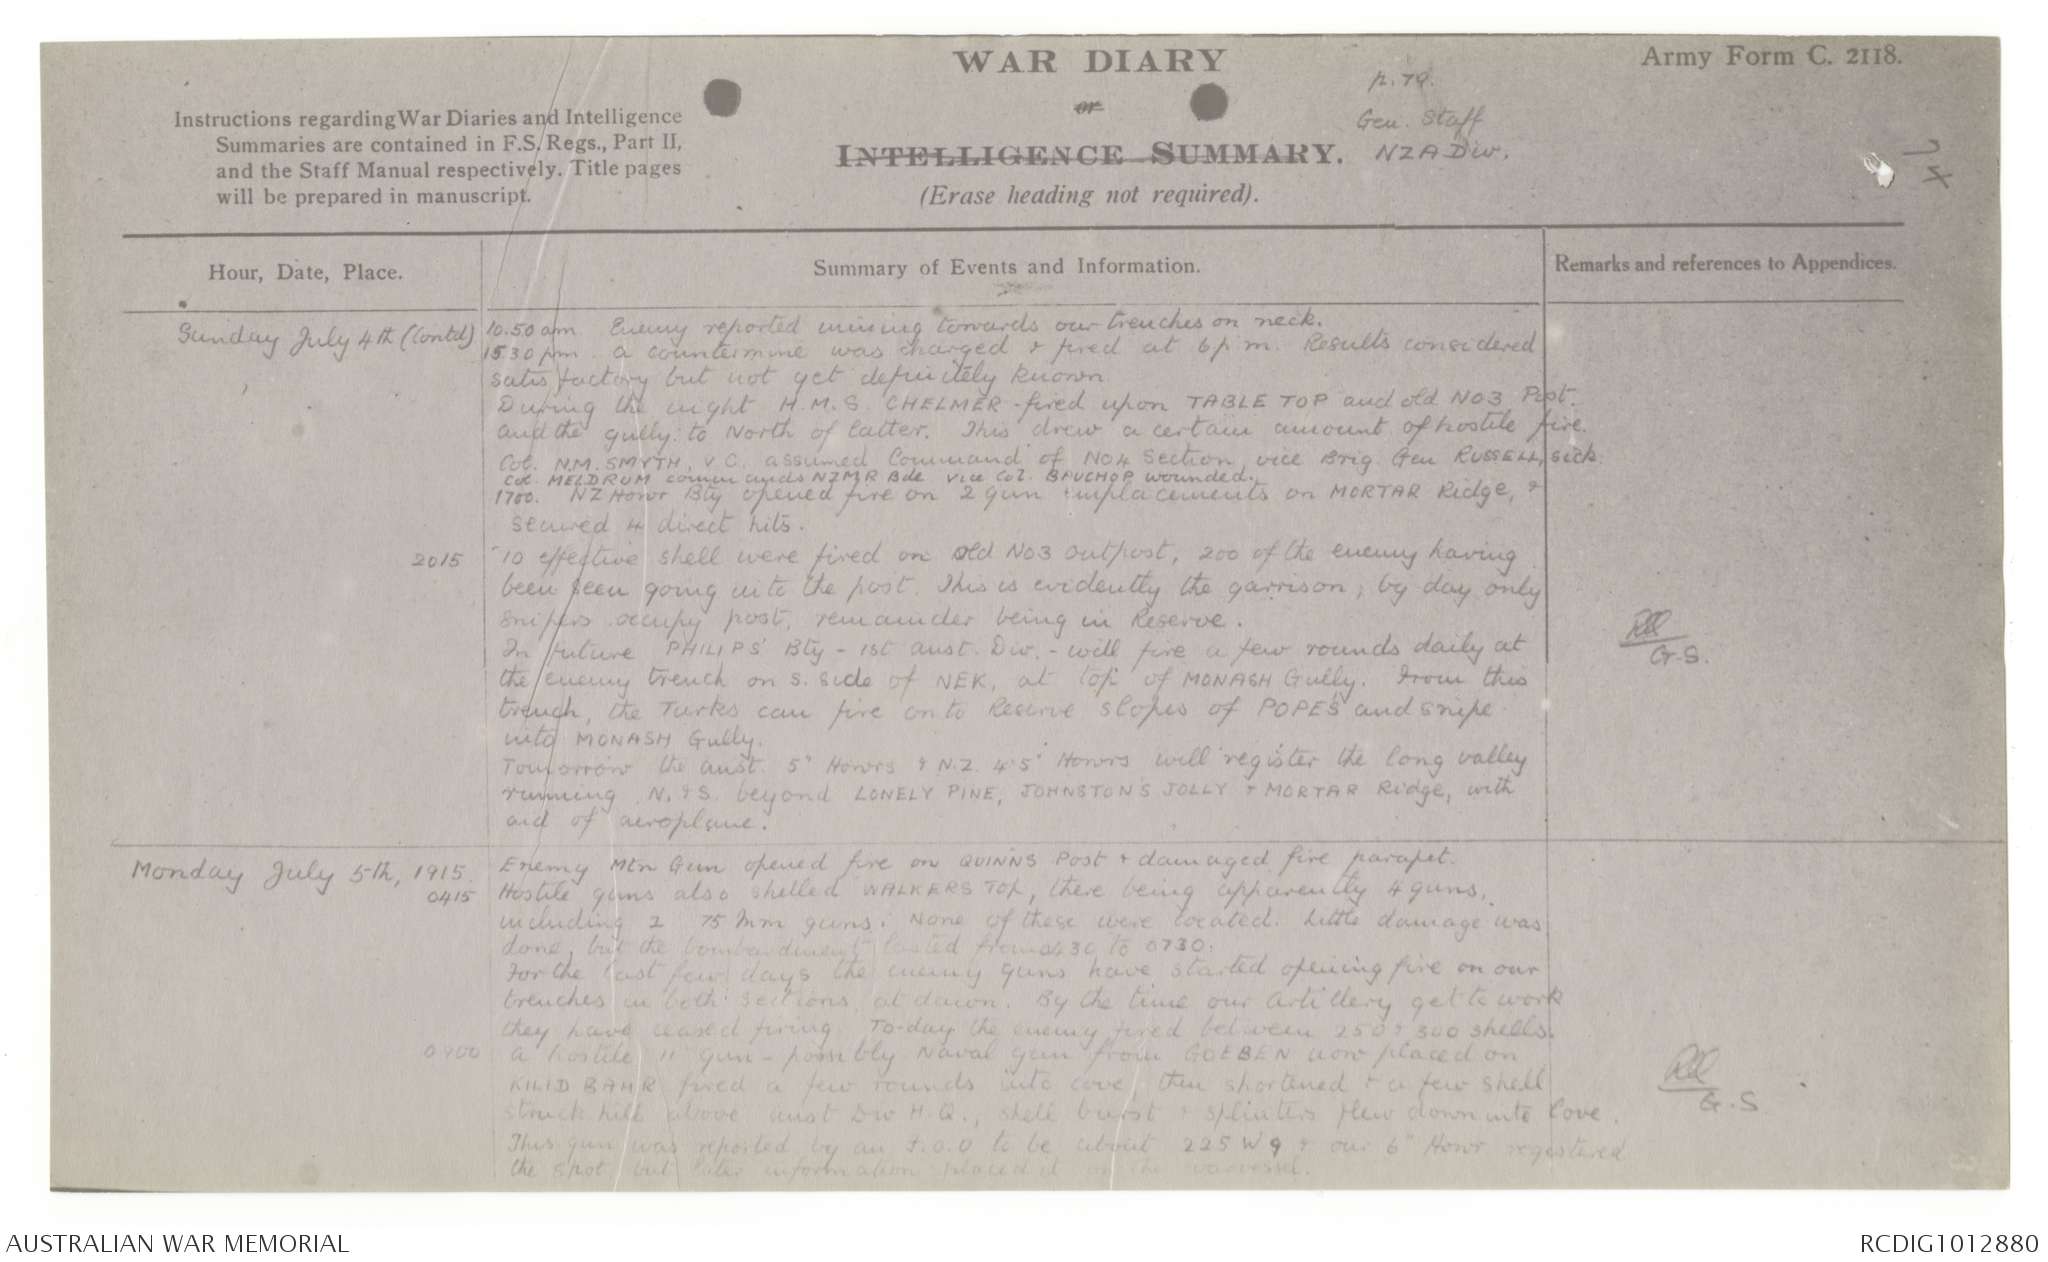 WAR DIARY
or
INTELLIGENCE SUMMARY.
(Erase heading not required).
Army Form C. 2118.
p. 79.
Gen. Staff
NZA Div.
74
Instructions regarding War Diaries and Intelligence
Summaries are contained in F.S. Regs., Part II,
and the Staff Manual respectively. Title pages
will be prepared in manuscript.
Hour, Date, Place.
Summary of Events and Information.
Remarks and references to Appendices.
Sunday July 4th (Contd)
10.50 am. Enemy reported mining towards our trenches on neck.
1530 pm. a countermine was charged & fired at 6 p m. Results considered
satisfactory but not yet definitely known
During the night H.M.S. CHELMER fired upon TABLE TOP and old NO3 Post.
and the gully to North of latter. This drew a certain amount of hostile fire.
Col. N.M. SMYTH, V.C. assumed Command of NO4 Section vice Brig. Gen RUSSELL, sick
Col. MELDRUM commands NZMR Bde vice Col. BAUCHOP wounded.
1700. NZ Howr Bty opened fire on 2 gun emplacements on MORTAR Ridge, &
secured 4 direct hits.
2015
10 effective shell were fired on Old No3 outpost, 200 of the enemy having
been seen going into the post. This is evidently the garrison, by day only
snipers occupy post, remainder being in Reserve.
In future PHILIPS' Bty - 1st Aust. Div. - will fire a few rounds daily at
the enemy trench on S. side of NEK, at top of MONASH Gully. From this
trench, the Turks can fire on to Reserve slopes of POPE'S and snipe
into MONASH Gully.
Tomorrow the Aust. 5" Howrs & N.Z. 4.5" Howrs will register the long valley
running N. & S. beyond LONELY PINE, JOHNSTON'S JOLLY & MORTAR Ridge, with
aid of aeroplane.
G.S.
Monday July 5th, 1915.
0415
Enemy Mtn Gun opened fire on QUINNS Post & damaged fire parapet.
Hostile guns also shelled WALKERS TOP, there being apparently 4 guns,
including 2 75 mm guns. None of these were located. Little damage was
done, but the bombardment lasted from 0430 to 0730.
For the last few days the enemy guns have started opening fire on our
trenches in both sections, at dawn. By the time our Artillery get to work
they have ceased firing. To-day the enemy fired between 250 & 300 shells.
0900
a hostile 11" gun - possibly Naval gun from GOEBEN now placed on
KILID BAHR fired a few rounds into cove, then shortened & a few shell
struck hill above Aust Div H.Q., shell burst & splinters flew down into Cove.
This gun was reported by an F.O.O to be about 225 W 9 & our 6" Howr registered
the spot but later information placed it on the warvessel.
G.S
AUSTRALIAN WAR MEMORIAL
RCDIG1012880